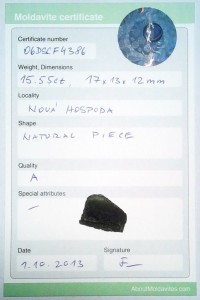 Moldavite certificate
Certificate number
06DSCF4386
Weight, Dimensions
15.55ct, 17x13x12mm
Locality
NOVÁ HOSPODA
Shape
NATURAL PIECE
Quality
A
Special attributes
—
Date
Signature
1.10.2013
AboutMoldavites.com